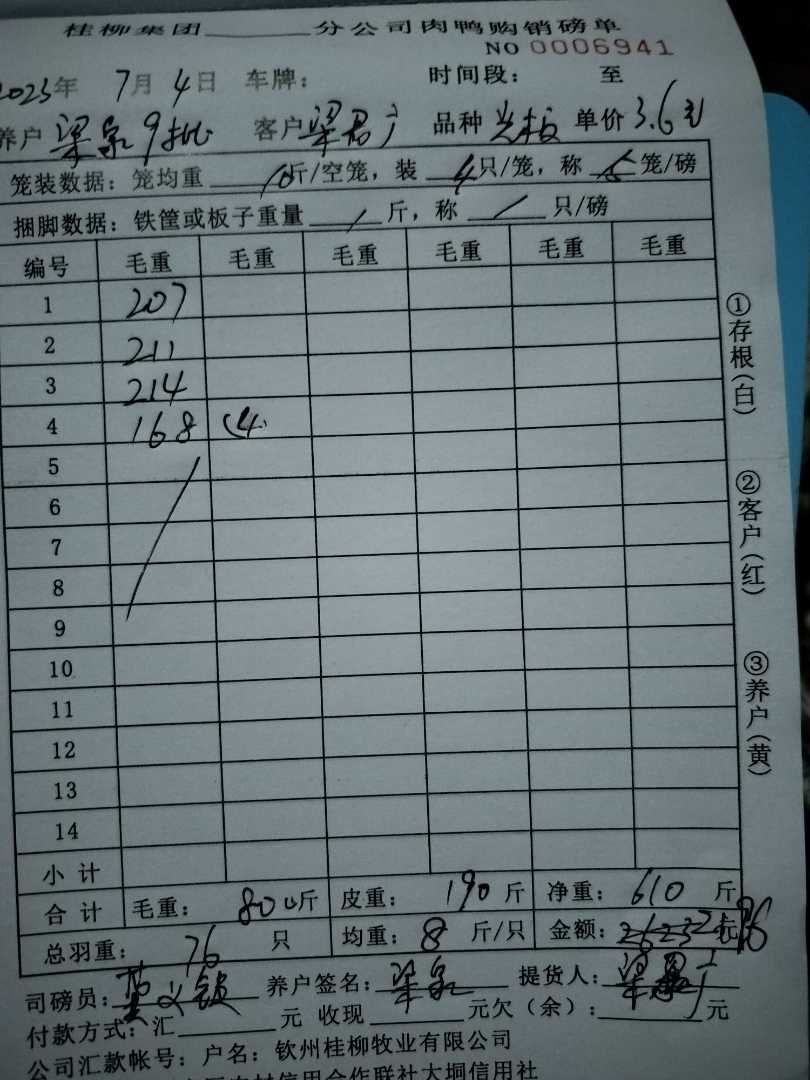 桂柳集团______分公司肉鸭购销磅单
NO 0006941
2023年 7月4日 车牌: 时间段: 至
养户 梁泉9批 客户 梁君广 品种 光板 单价 3.6元
笼装数据: 笼均重 10斤/空笼, 装 4只/笼, 称 5笼/磅
捆脚数据: 铁筐或板子重量 / 斤, 称 / 只/磅
编号 毛重 毛重 毛重 毛重 毛重 毛重
1 207
2 211
3 214
4 168 (4)
5
6
7
8
9
10
11
12
13
14
小计
合计 毛重: 800斤 皮重: 190斤 净重: 610斤
总羽重: 76只 均重: 8斤/只 金额: 元
司磅员: 养户签名: 梁泉 提货人: 梁君广
付款方式: 汇______元 收现______元欠(余):______元
公司汇款帐号: 户名: 钦州桂柳牧业有限公司
农村信用合作联社大垌信用社
①存根(白)
②客户(红)
③养户(黄)